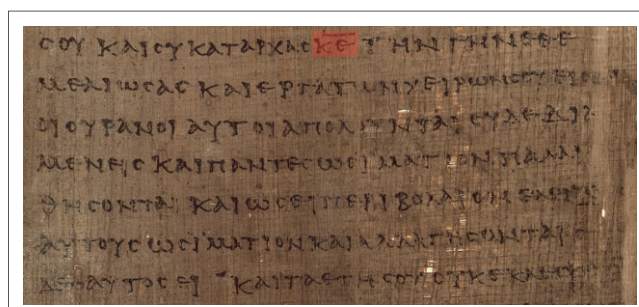 ϹΟΥ ΚΑΙ ϹΥ ΚΑΤΑΡΧΑϹ Κ̅Ε̅ ΤΗΝ ΓΗΝ ΕΘΕ
ΜΕΛΙΩϹΑϹ ΚΑΙ ΕΡΓΑ ΤΩΝ ΧΕΙΡΩΝ ϹΟΥ ΕΙϹΙΝ
ΟΙ ΟΥΡΑΝΟΙ ΑΥΤΟΙ ΑΠΟΛΟΥΝΤΑΙ ϹΥ ΔΕ ΔΙΑ
ΜΕΝΕΙϹ ΚΑΙ ΠΑΝΤΕϹ ΩϹ ΙΜΑΤΙΟΝ ΠΑΛΑΙ
ΘΗϹΟΝΤΑΙ ΚΑΙ ΩϹΕΙ ΠΕΡΙΒΟΛΑΙΟΝ
ΑΥΤΟΥϹ ΩϹ ΙΜΑΤΙΟΝ ΚΑΙ ΑΛΛΑΓΗϹΟΝΤΑΙ
ΔΕ Ο ΑΥΤΟϹ ΕΙ ΚΑΙ ΤΑ ΕΤΗ ϹΟΥ ΟΥΚ